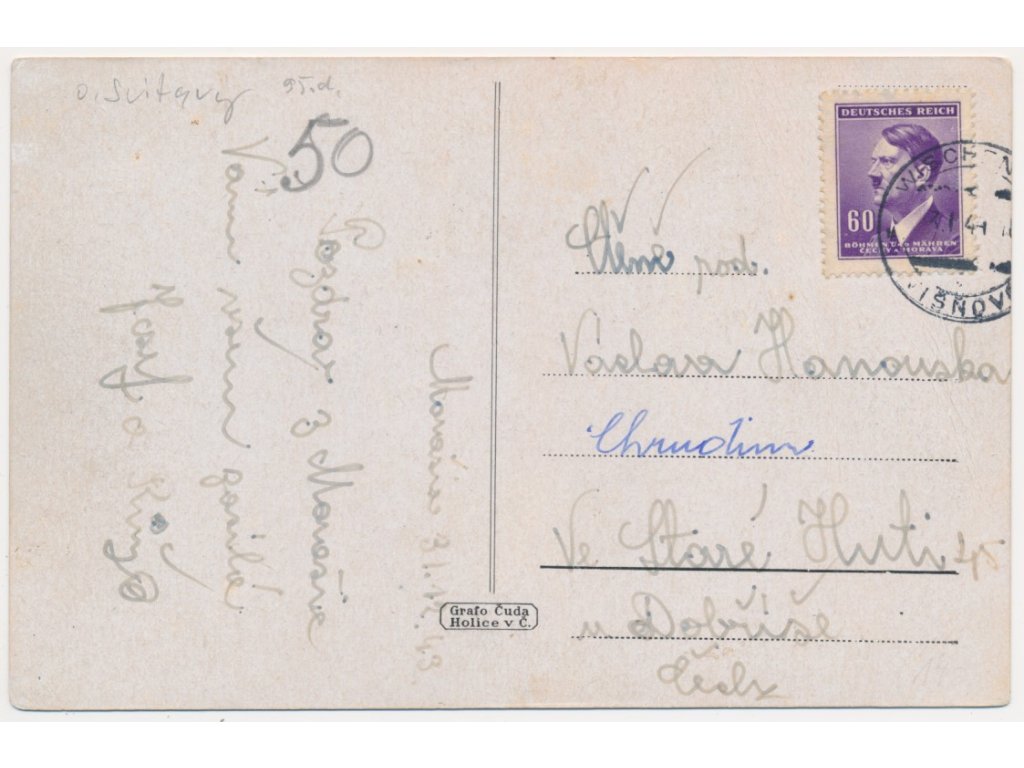 o. Svitavy 95.d.
50
Pozdrav z Moravy
Vám všem zasílá
Josef a Růža
31.12.43
Grafo Čuda
Holice v Č.
DEUTSCHES REICH
60
BÖHMEN UND MÄHREN
ČECHY A MORAVA
pod.
Václava Hanouska
Chrudim
Ve Staré Huti 45
u Dobříše
Čechy